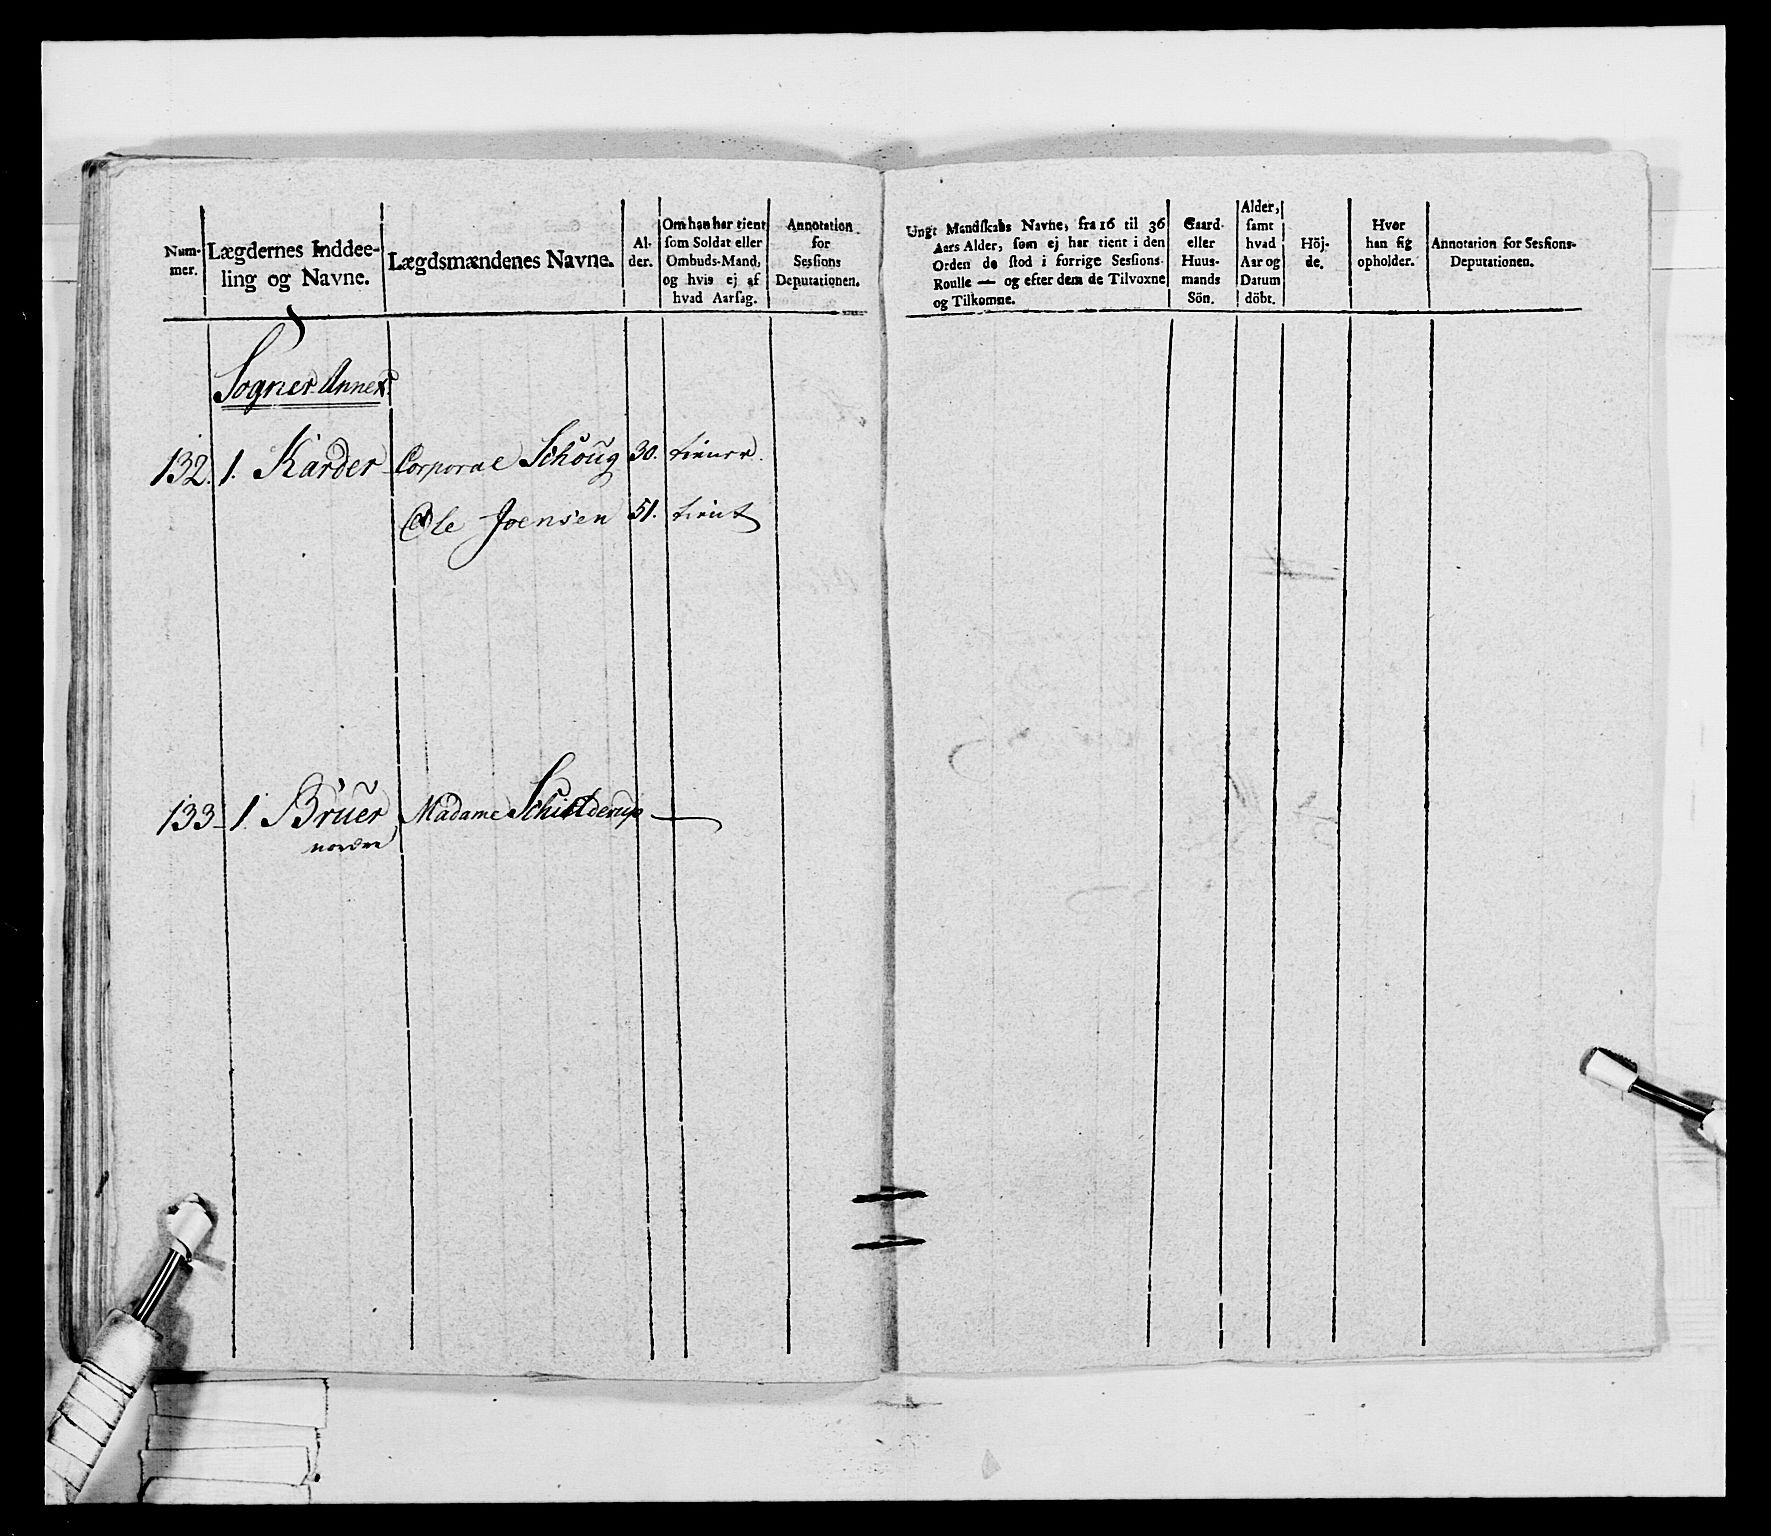 Num-
mer.
Lægdernes Inddee-
ling og Navne.
Lægdsmændenes Navne.
Al-
der.
Om han har tient
som Soldat eller
Ombuds-Mand,
og hvis ej af
hvad Aarsag.
Annotation
for
Sessions
Deputationen.
Sogner Annex
132. 1. Karder Corporal Schoug 30. tiener.
Ole Joensen 51. tient
133 1. Bruer Madame Schielderup —
nordre
Ungt Mandskabs Navne, fra 16 til 36
Aars Alder, som ej har tient i den
Orden de stod i forrige Sessions-
Roulle — og efter dem de Tilvoxne
og Tilkomne.
Gaard-
eller
Huus-
mands
Sön.
Alder,
samt
hvad
Aar og
Datum
döbt.
Höj-
de.
Hvor
han sig
opholder.
Annotation for Sessions-
Deputationen.